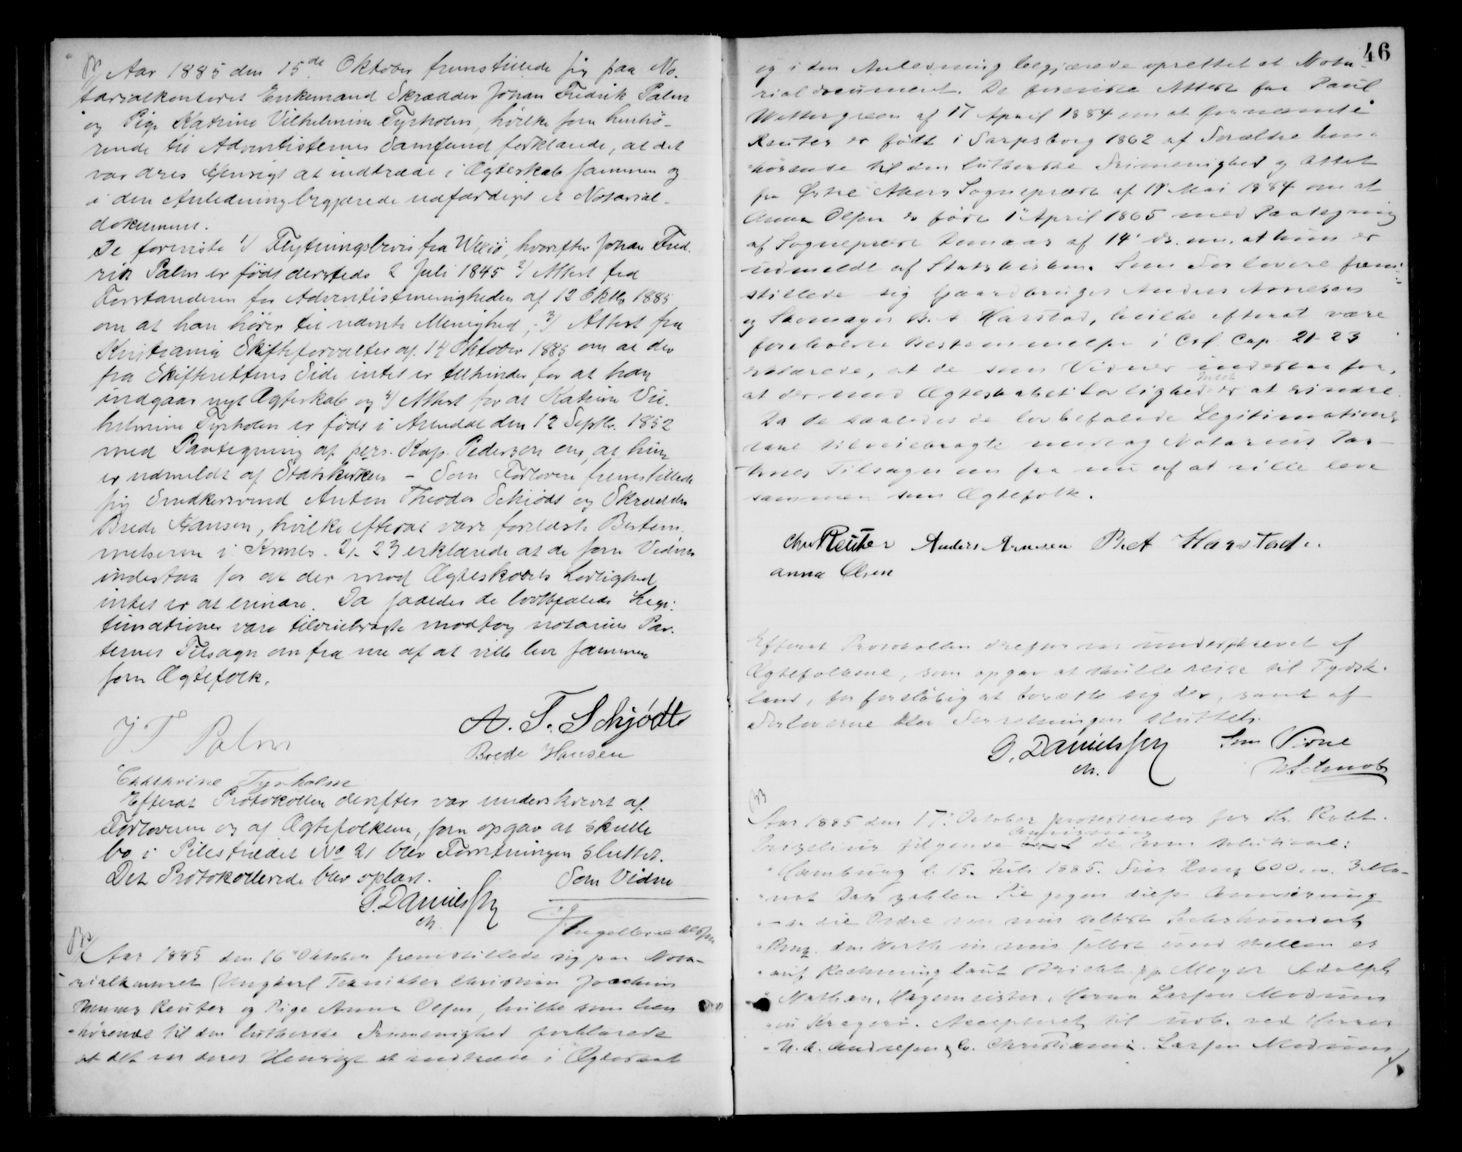 Aar 1885 den 15de Oktober fremstillede sig paa No-
tarialkontoret Enkemand Skrædder Johan Fredrik Palm
og Pige Katrine Vilhelmine Tyrholm, hvilke som henhø-
rende til Adventisternes Samfund forklarede, at det
var deres Hensigt at indtræde i Ægteskab sammen og
i den Anledning begjærede udfærdiget et Notarial-
dokument.
De foreviste 1/ Flytningsbevis fra Wexiö, hvorefter Johan Fred-
rik Palm er født dersteds 2 Juli 1845 2/ Attest fra
Forstanderen for Adventistmenigheden af 12 Oktbr 1885
om at han hører til nævnte Menighed, 3/ Attest fra
Kristiania Skifteforvalter af 14 Oktober 1885 om at der
fra Skifterettens Side intet er tilhinder for at han
indgaar nyt Ægteskab og 4/ Attest for at Katrine Vil-
helmine Tyrholm er født i Arendal den 12 Septbr. 1852
med Paategning af pers. Kap. Pedersen om, at hun
er udmeldt af Statskirken – Som Forlovere fremstillede
sig Snedkersvend Anton Theodor Schiødt og Skrædder
Brede Hansen, hvilke efterat være forelæste Bestem-
melserne i Krml. 21-23 erklærede at de som Vidner
indestaa for at der mod Ægteskabets Lovlighed
intet er at erindre. Da saaledes de lovbefalede Legi-
timationer vare tilveiebragte modtog notarius Par-
ternes Tilsagn om fra nu af at ville leve sammen
som Ægtefolk.
J F Palm
A. T. Schjødt
Brede Hansen
Cathrine Tyrholm
Efterat Protokollen derefter var underskrevet af
Forloverne og af Ægtefolkene, som opgav at skulle
bo i Pilestrædet No 21 blev Forretningen sluttet.
Det Protokollerede blev oplæst.
Som Vidne
G. Danielssen
Aar 1885 den 16 Oktober fremstillede sig paa Nota-
rialkontoret Ungkarl Christian Joachim
Reuter og Pige Anna Olsen, hvilke som hen-
hørende til den lutherske Frimenighed forklarede
at det var deres Hensigt at indtræde i Ægteskab
46
og i den Anledning begjærede oprettet et Nota-
rialdocument. De foreviste Attest fra Paul
Wettergreen af 17 April 1884 om at fornævnte
Reuter er født i Sarpsborg 1862 af Forældre hen-
hørende til den lutherske Frimenighed og Attest
fra Østre Akers Sognepræst af 18 Mai 1884 om at
Anna Olsen er født 1 April 1865 med Paategning
af Sognepræst af 14 ds. om, at hun er
udmeldt af Statskirken. Som Forlovere frem-
stillede sig Gaardbruger Anders Arnesen
og Skomager B. A. Harstad, hvilke efterat være
forelæste Bestemmelsen i Crl Cap. 21-23
erklærede, at de som Vidner indestaa for,
at der mod Ægteskabets Lovlighed intet er at erindre.
Da de saaledes de lovbefalede Legitimationer
vare tilveiebragte modtog Notarius Par-
ternes Tilsagn om fra nu af at ville leve
sammen som Ægtefolk.
Chr Reuter Anders Arnesen B A Harstad.
Anna Olsen
Efterat Protokollen derefter var underskrevet af
Ægtefolkene, som opgav at skulle reise til Tydsk-
land, for foreløbig at bosætte sig der, samt af
Forloverne blev Forretningen sluttet.
G. Danielssen Som Vidne
Aar 1885 den 17 October protesteredes for Hr. Robt.
følgende Anvisning de non solutione:
Hamburg d. 15. Juli 1885. Für Rmq 600. 3 Mo-
nat Dato zahlen Sie gegen diese Anweisung
an die Ordre von mir selbst Sechshundert
Rmq. den Werth in mir selbst und stellen es
auf Rechnung laut Bericht pp Meyer Adolph
Nathan, Hagemeister. Herrn Larsen Modum
in Kragerø. Acceptirt til ved Herrer
N. A. Andresen & Co. Christiania. Larsen Modum